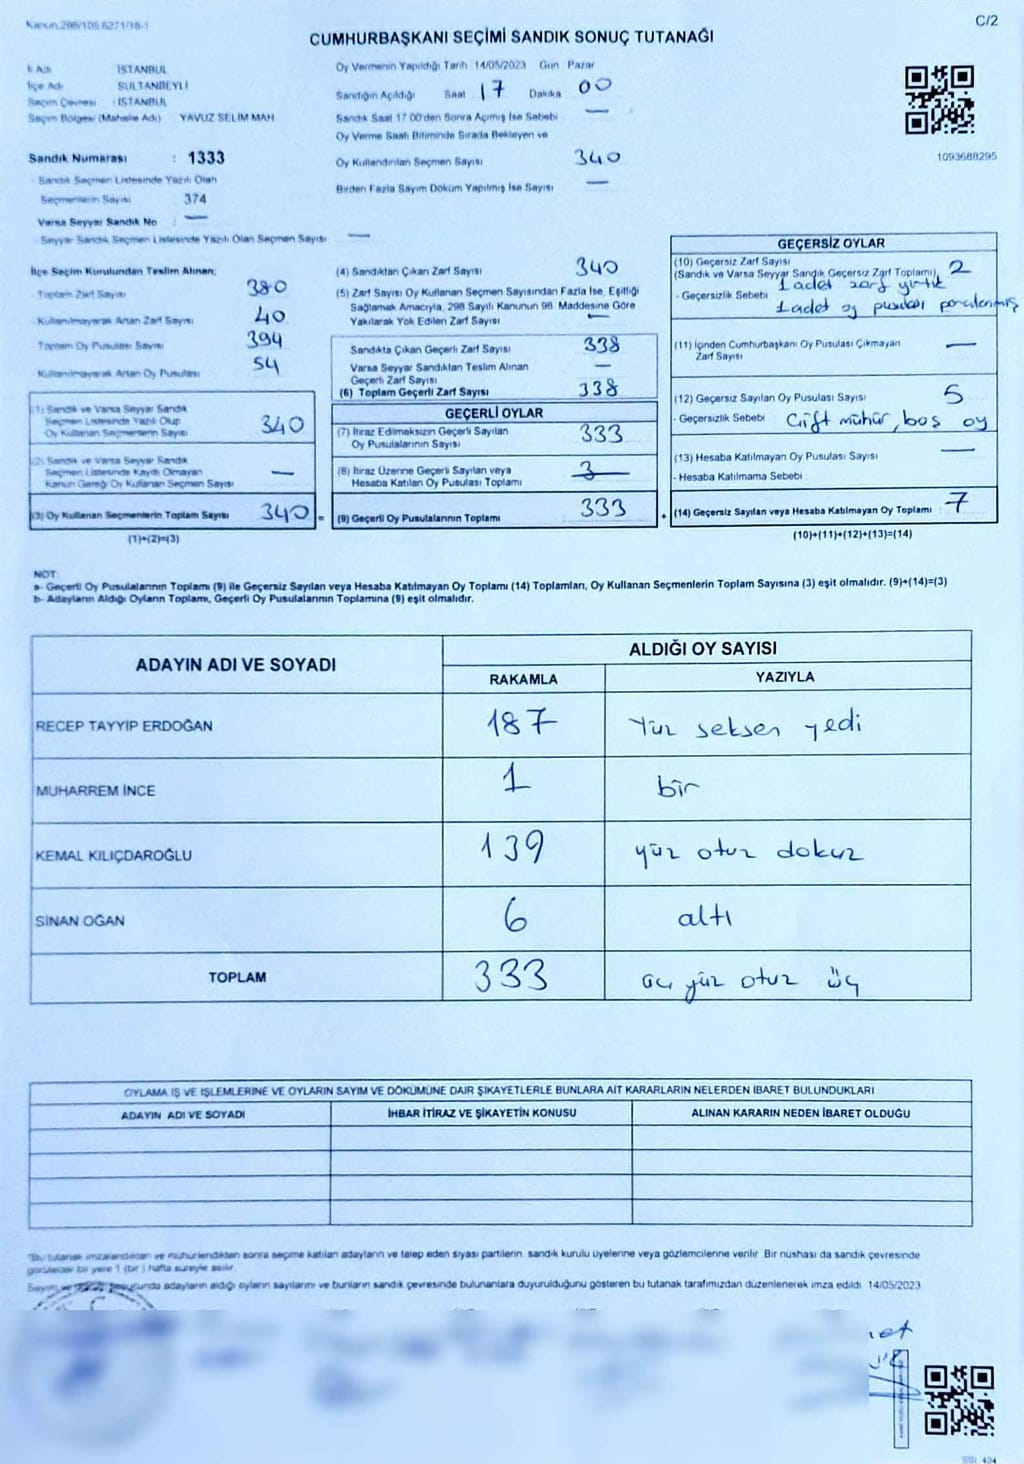 Kanun:298/105,6271/18-1
C/2
CUMHURBAŞKANI SEÇİMİ SANDIK SONUÇ TUTANAĞI
İl Adı İSTANBUL
İlçe Adı SULTANBEYLİ
Seçim Çevresi : İSTANBUL
Seçim Bölgesi (Mahalle Adı) YAVUZ SELİM MAH.
Oy Vermenin Yapıldığı Tarih 14/05/2023 Gün Pazar
Sandığın Açıldığı Saat 17 Dakika 00
Sandık Saat 17.00'den Sonra Açılmış İse Sebebi —
Oy Verme Saati Bitiminde Sırada Bekleyen ve
Oy Kullandırılan Seçmen Sayısı 340
Birden Fazla Sayım Döküm Yapılmış İse Sayısı —
1093688295
Sandık Numarası : 1333
Sandık Seçmen Listesinde Yazılı Olan
Seçmenlerin Sayısı 374
Varsa Seyyar Sandık No : —
Seyyar Sandık Seçmen Listesinde Yazılı Olan Seçmen Sayısı —
İlçe Seçim Kurulundan Teslim Alınan;
Toplam Zarf Sayısı 380
Kullanılmayarak Artan Zarf Sayısı 40
Toplam Oy Pusulası Sayısı 394
Kullanılmayarak Artan Oy Pusulası 54
(1) Sandık ve Varsa Seyyar Sandık
Seçmen Listesinde Yazılı Olup
Oy Kullanan Seçmenlerin Sayısı 340
(2) Sandık ve Varsa Seyyar Sandık
Seçmen Listesinde Kaydı Olmayan
Kanun Gereği Oy Kullanan Seçmen Sayısı —
(3) Oy Kullanan Seçmenlerin Toplam Sayısı 340 =
(1)+(2)=(3)
(4) Sandıktan Çıkan Zarf Sayısı 340
(5) Zarf Sayısı Oy Kullanan Seçmen Sayısından Fazla İse, Eşitliği
Sağlamak Amacıyla, 298 Sayılı Kanunun 98. Maddesine Göre
Yakılarak Yok Edilen Zarf Sayısı —
Sandıkta Çıkan Geçerli Zarf Sayısı 338
Varsa Seyyar Sandıktan Teslim Alınan
Geçerli Zarf Sayısı —
(6) Toplam Geçerli Zarf Sayısı 338
GEÇERLİ OYLAR
(7) İtiraz Edilmeksizin Geçerli Sayılan
Oy Pusulalarının Sayısı 333
(8) İtiraz Üzerine Geçerli Sayılan veya
Hesaba Katılan Oy Pusulası Toplamı
(9) Geçerli Oy Pusulalarının Toplamı 333 +
GEÇERSİZ OYLAR
(10) Geçersiz Zarf Sayısı
(Sandık ve Varsa Seyyar Sandık Geçersiz Zarf Toplamı) 2
- Geçersizlik Sebebi 1 adet zarf yırtık
1 adet oy pusulası parçalanmış
(11) İçinden Cumhurbaşkanı Oy Pusulası Çıkmayan
Zarf Sayısı —
(12) Geçersiz Sayılan Oy Pusulası Sayısı 5
- Geçersizlik Sebebi Çift mühür, boş oy
(13) Hesaba Katılmayan Oy Pusulası Sayısı —
- Hesaba Katılmama Sebebi
(14) Geçersiz Sayılan veya Hesaba Katılmayan Oy Toplamı : 7
(10)+(11)+(12)+(13)=(14)
NOT:
a- Geçerli Oy Pusulalarının Toplamı (9) ile Geçersiz Sayılan veya Hesaba Katılmayan Oy Toplamı (14) Toplamları, Oy Kullanan Seçmenlerin Toplam Sayısına (3) eşit olmalıdır. (9)+(14)=(3)
b- Adayların Aldığı Oyların Toplamı, Geçerli Oy Pusulalarının Toplamına (9) eşit olmalıdır.
ADAYIN ADI VE SOYADI
ALDIĞI OY SAYISI
RAKAMLA YAZIYLA
RECEP TAYYİP ERDOĞAN 187 Yüz seksen yedi
MUHARREM İNCE 1 bir
KEMAL KILIÇDAROĞLU 139 yüz otuz dokuz
SİNAN OĞAN 6 altı
TOPLAM 333 üç yüz otuz üç
OYLAMA İŞ VE İŞLEMLERİNE VE OYLARIN SAYIM VE DÖKÜMÜNE DAİR ŞİKAYETLERLE BUNLARA AİT KARARLARIN NELERDEN İBARET BULUNDUKLARI
ADAYIN ADI VE SOYADI İHBAR İTİRAZ VE ŞİKAYETİN KONUSU ALINAN KARARIN NEDEN İBARET OLDUĞU
"Bu tutanak imzalandıktan ve mühürlendikten sonra seçime katılan adayların ve talep eden siyasi partilerin sandık kurulu üyelerine veya gözlemcilerine verilir. Bir nüshası da sandık çevresinde
görülecek bir yere 1 (bir) hafta süreyle asılır.
Sayım ve sonucunda adayların aldığı oyların sayılarını ve bunların sandık çevresinde bulunanlara duyurulduğunu gösteren bu tutanak tarafımızdan düzenlenerek imza edildi. 14/05/2023